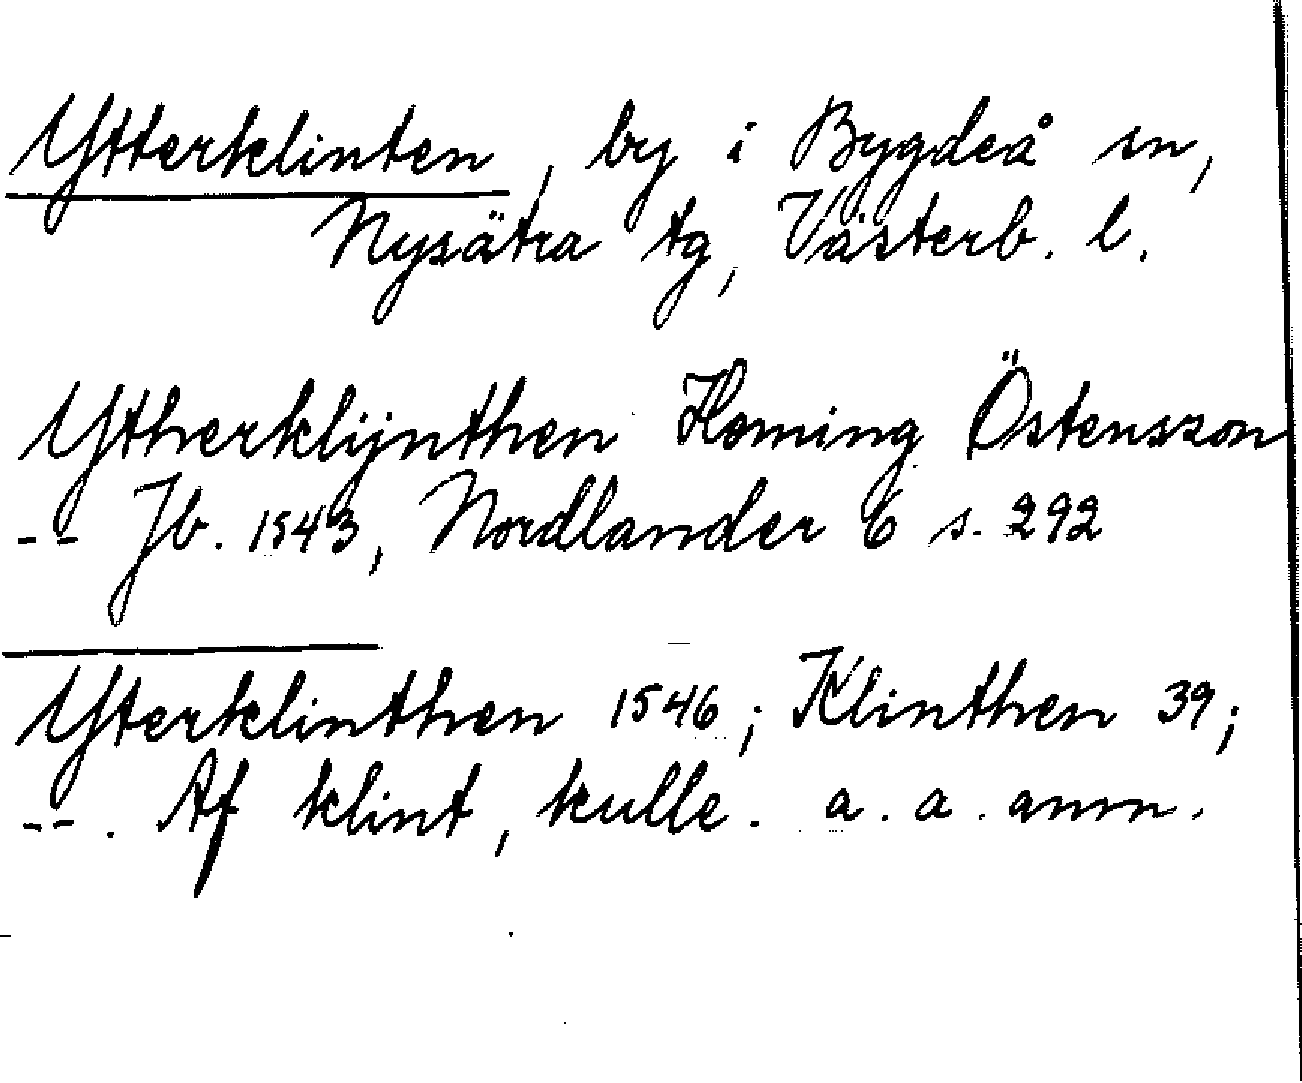 Ytterklinten, by i Bygdeå sn,
Nysätra tg, Västerb. l.
Ytherklijnthen Heming Östensszon
-- Jb. 1543, Nordlander 6 s. 292
Yterklinthen 1546; Klinthen 39;
--. Af klint, kulle. a. a. anm.